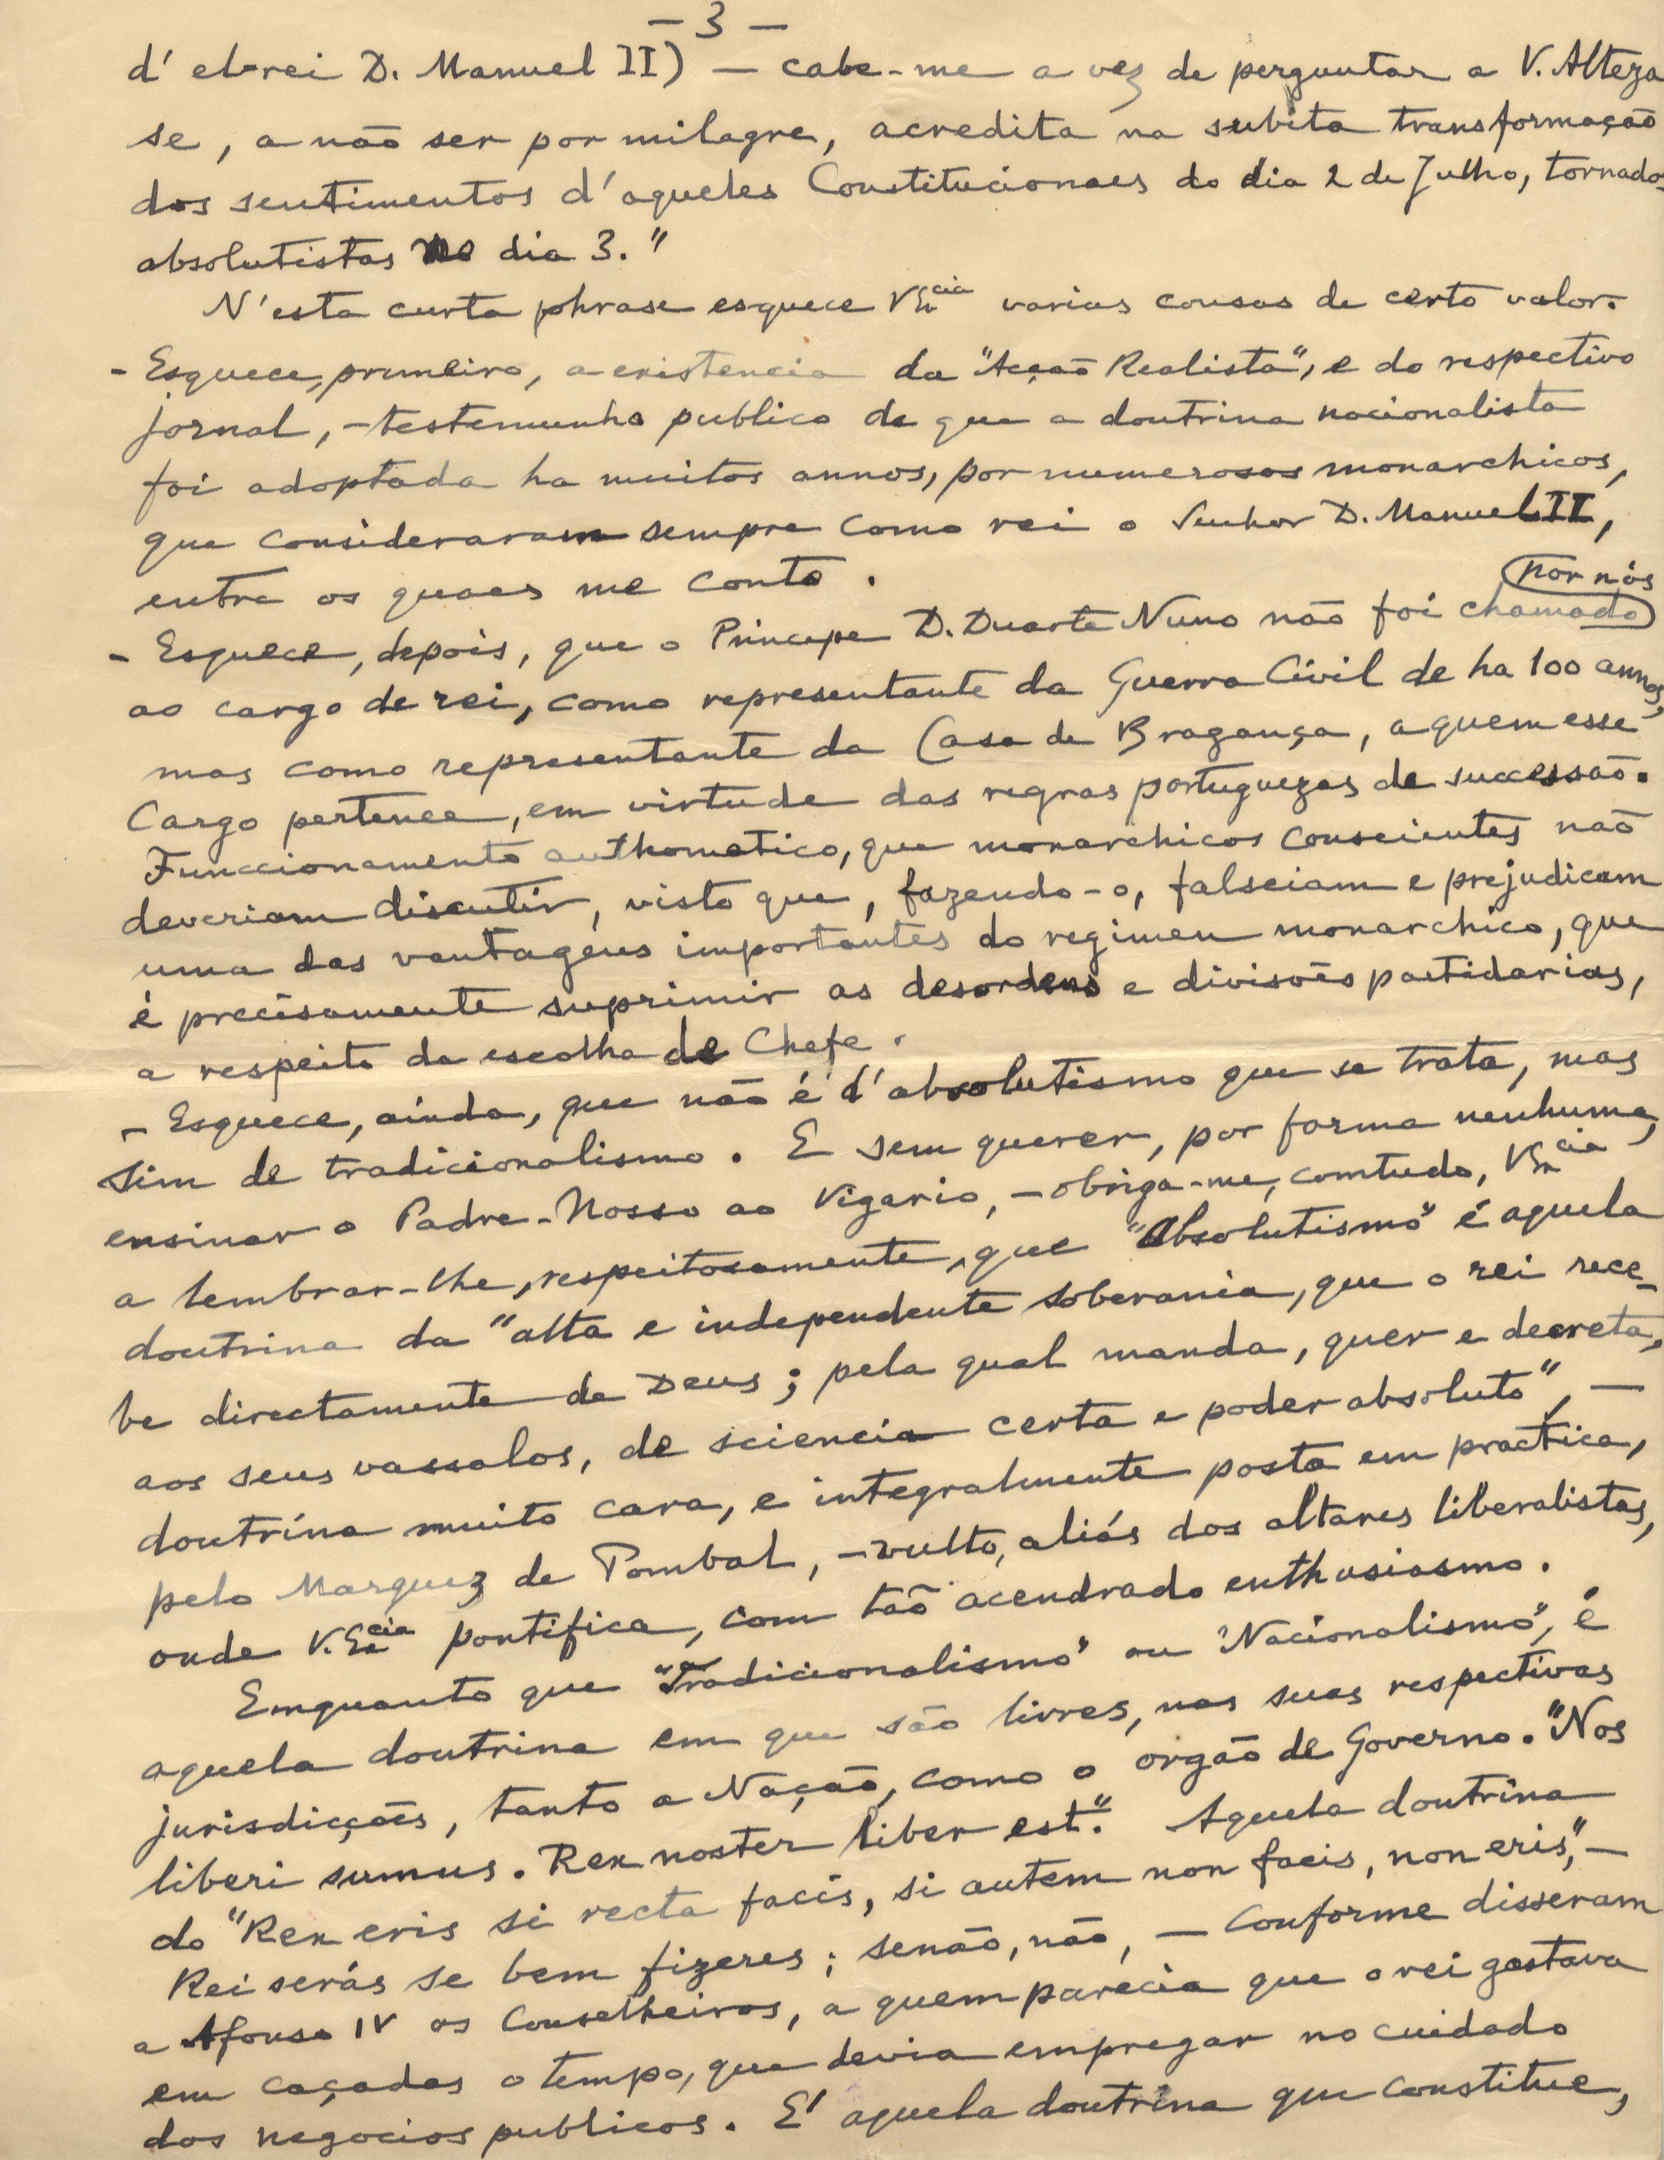 - 3 -
d' el-rei D. Manuel II) - cabe-me a vez de perguntar a V. Alteza
se, a não ser por milagre, acredita na subita transformação
dos sentimentos d'aqueles Constitucionaes do dia 2 de Julho, tornados
absolutistas no dia 3."
N'esta curta phrase esquece V. Ex.cia varias cousas de certo valor.
- Esquece, primeiro, a existencia da "Acção Realista", e do respectivo
jornal, - testemunho publico de que a doutrina nacionalista
foi adoptada ha muitos annos, por numerosos monarchicos,
que consideraram sempre como rei o Senhor D. Manuel II,
entre os quaes me conto.
por nós
- Esquece, depois, que o Principe D. Duarte Nuno não foi chamado
ao cargo de rei, como representante da Guerra Civil de ha 100 annos,
mas como representante da Casa de Bragança, a quem esse
cargo pertence, em virtude das regras portuguezas de successão.
Funccionamento authomatico, que monarchicos conscientes não
deveriam discutir, visto que, fazendo-o, falseiam e prejudicam
uma das vantagens importantes do regimen monarchico, que
é precisamente suprimir as desordens e divisões partidarias,
a respeito da escolha de Chefe.
- Esquece, ainda, que não é d'absolutismo que se trata, mas
sim de tradicionalismo. E sem querer, por forma nenhuma,
ensinar o Padre-Nosso ao Vigario, - obriga-me, comtudo, V. Ex.cia
a lembrar-lhe, respeitosamente, que "Absolutismo" é aquela
doutrina da "alta e independente soberania, que o rei rece-
be directamente de Deus; pela qual manda, quer e decreta,
aos seus vassalos, de sciencia certa e poder absoluto", -
doutrina muito cara, e integralmente posta em practica,
pelo Marquez de Pombal, - vulto, aliás dos altares liberalistas,
onde V. Ex.cia pontifica, com tão acendrado enthusiasmo.
Emquanto que "Tradicionalismo" ou "Nacionalismo", é
aquela doutrina em que são livres, nas suas respectivas
jurisdicções, tanto a Nação, como o orgão de Governo. "Nos
liberi sumus. Rex noster liber est." Aquela doutrina
do "Rex eris si recta facis, si autem non facis, non eris", -
Rei serás se bem fizeres; senão, não, - conforme disseram
a Afonso IV os Conselheiros, a quem parecia que o rei gastava
em caçadas o tempo, que devia empregar no cuidado
dos negocios publicos. E' aquela doutrina que constitue,